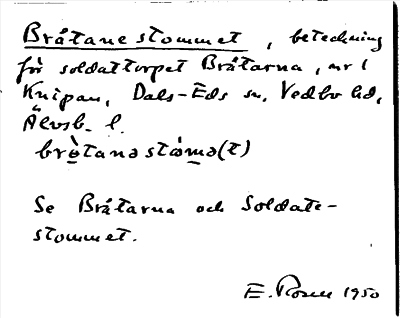 Bråtanestommet, beteckning
för soldattorpet Bråtarna, nr 1
Knipan, Dals-Eds sn, Vedbo hd,
Älvsb. l.
brò̤tanəstɷ̀mə(t)
Se Bråtarna och Soldate-
stommet.
E. Rosell 1950